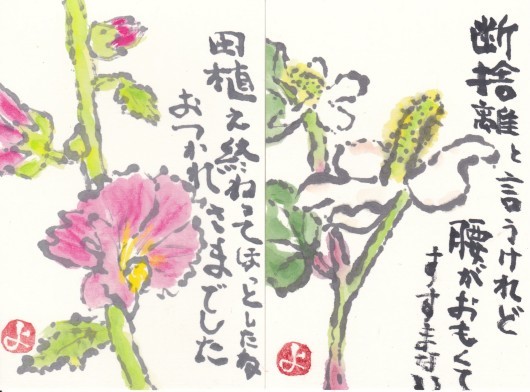 断捨離と言うけれど
腰がおもくて
すすまない
田植え終わってほっとしたね
おつかれさまでした
よ
よ